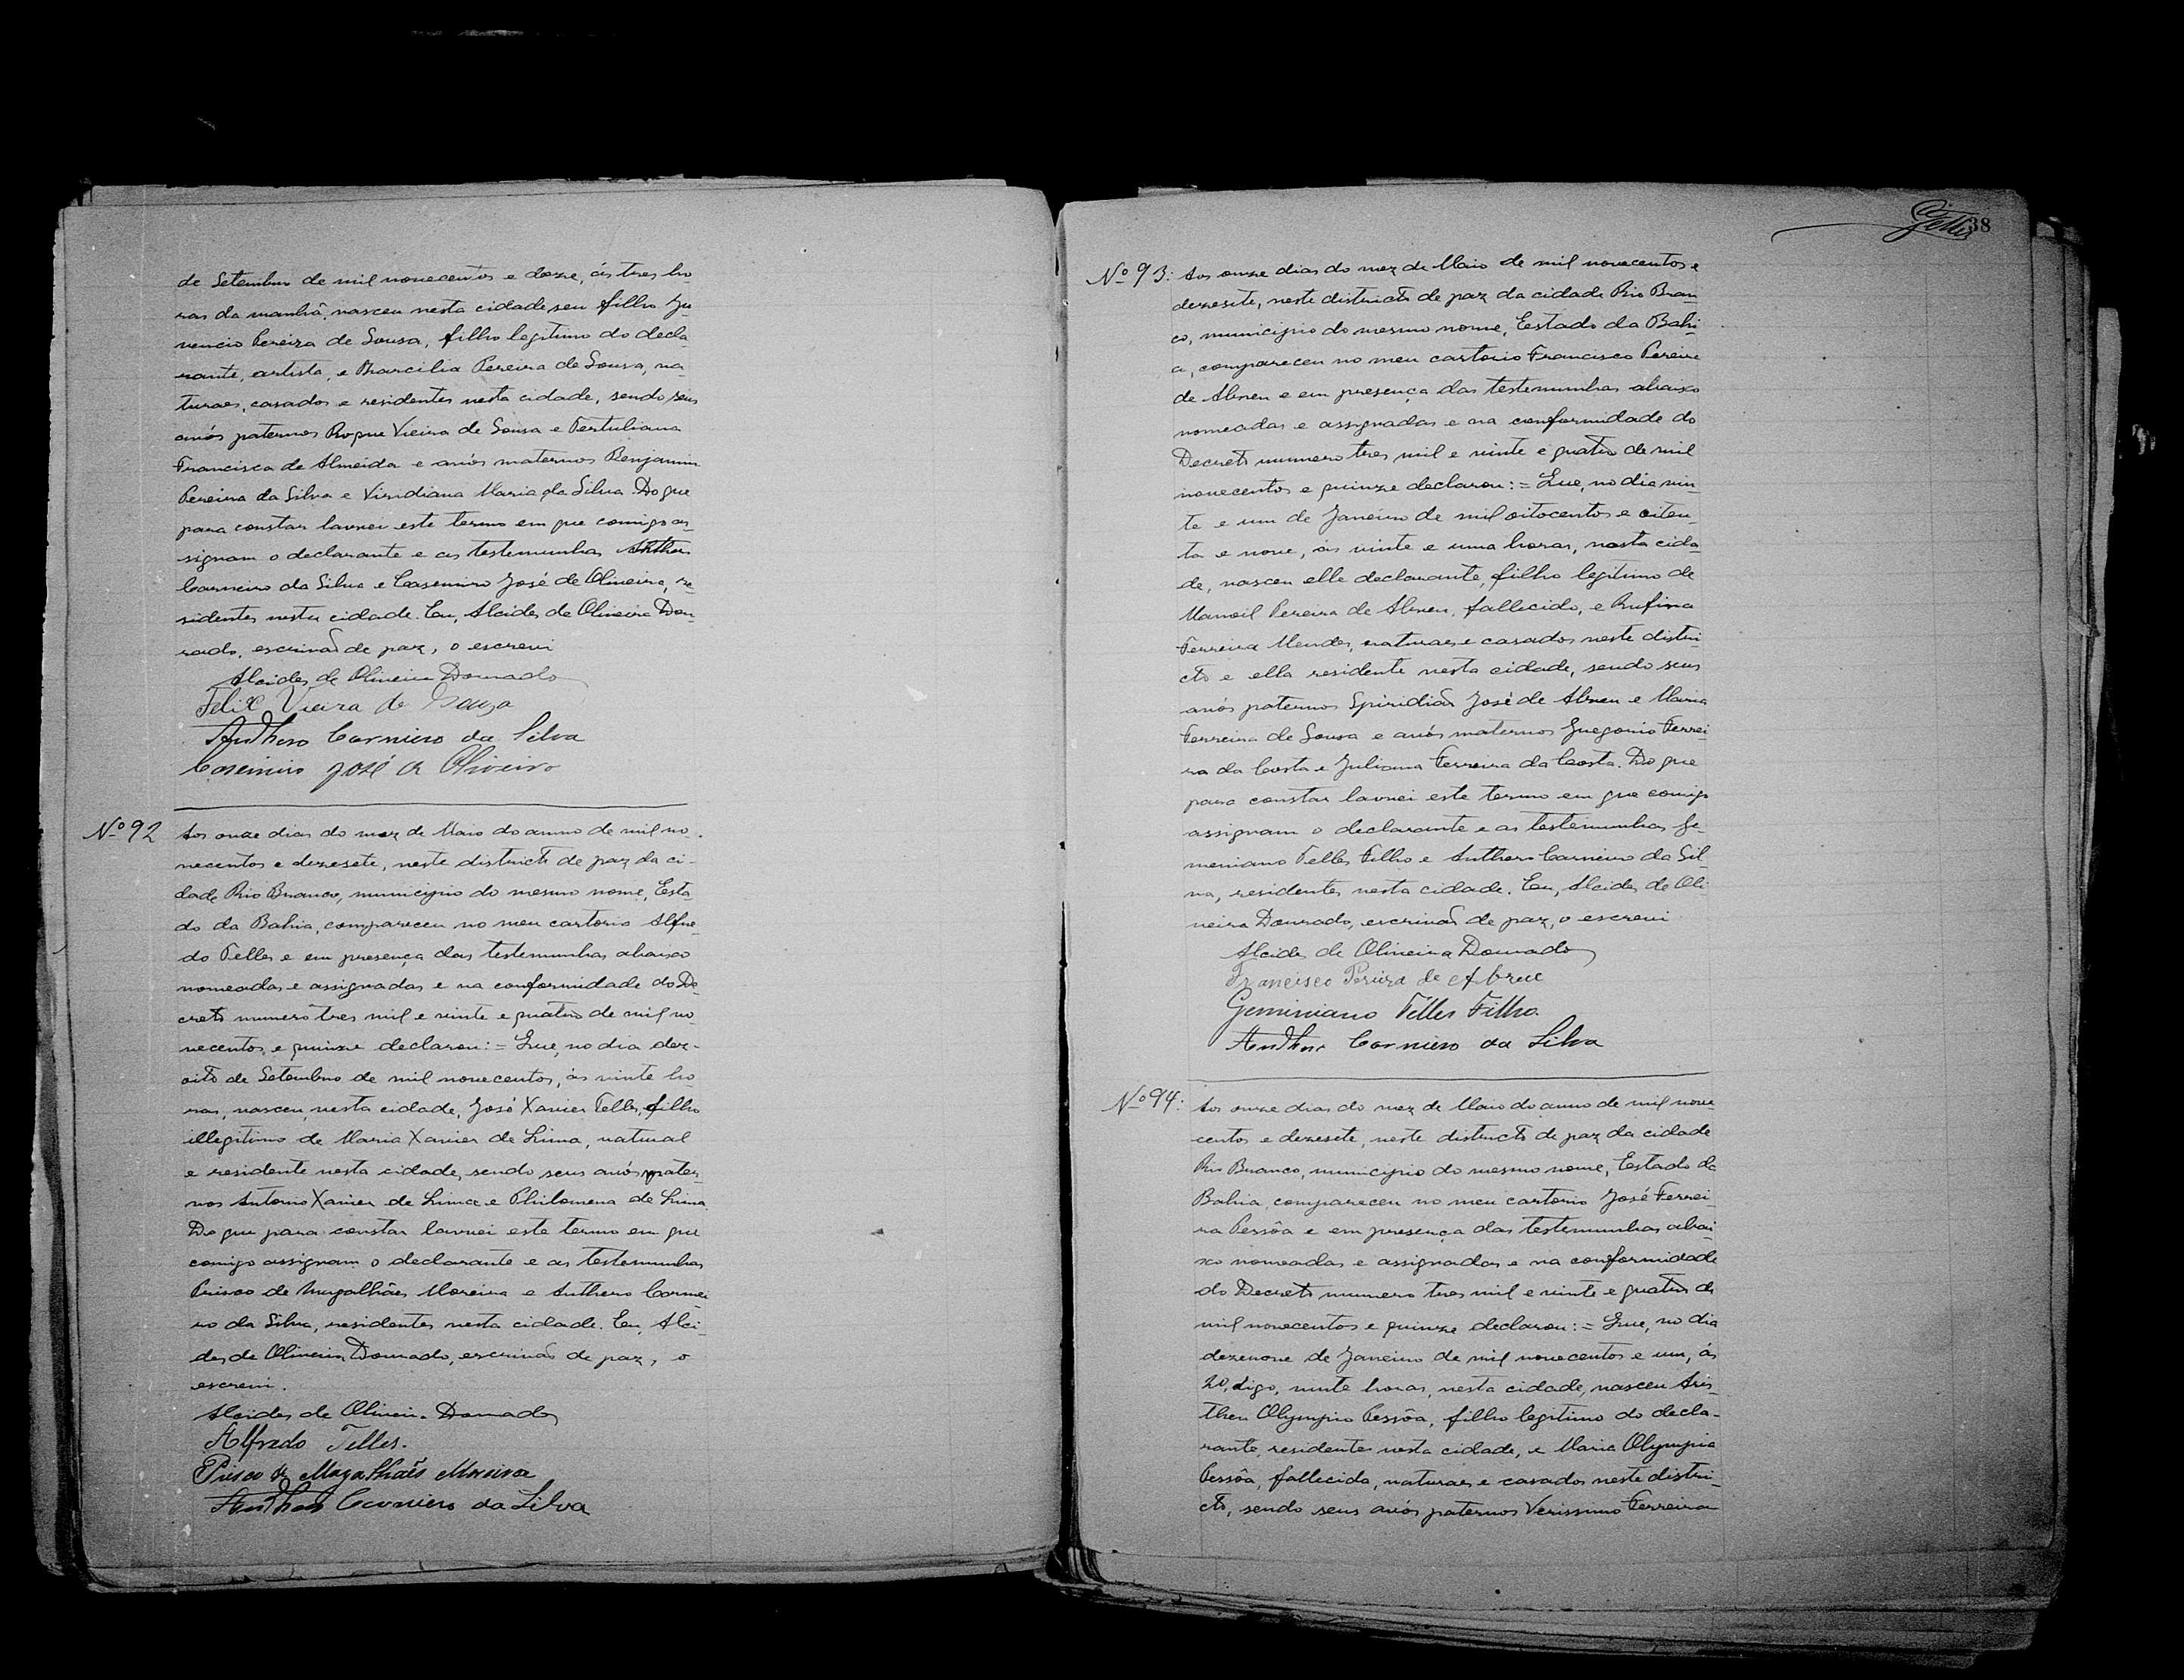 de Setembro de mil novecentos e doze, ás tres ho-
ras da manhã, nasceu nesta cidade seu filho Ju-
vencio Pereira de Sousa, filho legitimo do decla-
rante, artista, e Marcilia Pereira de Sousa, na-
turaes, casados e residentes nesta cidade, sendo seus
avós paternos Roque Vieira de Sousa e Tertuliana
Francisca de Almeida e avós maternos Benjamin
Pereira da Silva e Viridiana Maria da Silva. Do que
para constar lavrei este termo em que comigo as-
signam o declarante e as testemunhas Anthero
Carneiro da Silva e Casemiro José de Oliveira, re-
sidentes nesta cidade. Eu, Alcides de Oliveira Dou-
rado, escrivaõ de paz, o escrevi
Alcides de Oliveira Dourado
Felix Vieira de Souza
Anthero Carneiro da Silva
Casimiro José de Oliveira
Nº 92
Aos onze dias do mez de Maio do anno de mil no-
vecentos e dezesete, neste districto de paz da ci-
dade Rio Branco, municipio do mesmo nome, Esta-
do da Bahia, compareceu no meu cartorio Alfre-
do Telles e em presença das testemunhas abaixo
nomeadas e assignadas e na conformidade do De-
creto numero tres mil e vinte e quatro de mil no-
vecentos e quinze declarou: = Que, no dia dez-
oito de Setembro de mil novecentos, ás vinte ho-
ras, nasceu, nesta cidade, José Xavier Telles, filho
illegitimo de Maria Xavier de Lima, natural
e residente nesta cidade, sendo seus avós mater-
nos Antonio Xavier de Lima e Philomena de Lima.
Do que para constar lavrei este termo em que
comigo assignam o declarante e as testemunhas
Prisco de Magalhães Moreira e Anthero Carnei-
ro da Silva, residentes nesta cidade. Eu, Alci-
des de Oliveira Dourado, escrivaõ de paz, o
escrevi.
Alcides de Oliveira Dourado
Alfredo Telles.
Prisco de Magalhães Moreira
Anthero Carneiro da Silva
Telles
38
Nº 93:
Aos onze dias do mez de Maio de mil novecentos e
dezesete, neste districto de paz da cidade Rio Bran-
co, municipio do mesmo nome, Estado da Bahi-
a, compareceu no meu cartorio Francisco Pereira
de Abreu e em presença das testemunhas abaixo
nomeadas e assignadas e na conformidade do
Decreto numero tres mil e vinte e quatro de mil
novecentos e quinze declarou: = Que, no dia vin-
te e um de Janeiro de mil oitocentos e oiten-
ta e nove, ás vinte e uma horas, nesta cida-
de, nasceu elle declarante, filho legitimo de
Manoel Pereira de Abreu, fallecido, e Rufina
Ferreira Mendes, naturaes e casados neste distri-
cto e ella residente nesta cidade, sendo seus
avós paternos Spiridiaõ José de Abreu e Maria
Ferreira de Sousa e avós maternos Gregorio Ferrei-
ra da Costa e Juliana Ferreira da Costa. Do que
para constar lavrei este termo em que comigo
assignam o declarante e as testemunhas Ge-
meniano Telles Filho e Anthero Carneiro da Sil-
va, residentes nesta cidade. Eu, Alcides de Oli-
veira Dourado, escrivaõ de paz, o escrevi
Alcides de Oliveira Dourado
Francisco Pereira de Abreu
Geminiano Telles Filho.
Anthero Carneiro da Silva
Nº 94:
Aos onze dias do mez de Maio do anno de mil nove-
centos e dezesete, neste districto de paz da cidade
Rio Branco, municipio do mesmo nome, Estado da
Bahia, compareceu no meu cartorio José Ferrei-
ra Pessôa e em presença das testemunhas abai-
xo nomeadas e assignadas e na conformidade
do Decreto numero tres mil e vinte e quatro de
mil novecentos e quinze declarou: = Que, no dia
dezenove de Janeiro de mil novecentos e um, ás
20, digo, vinte horas, nesta cidade, nasceu Aris-
theu Olympio Pessôa, filho legitimo do decla-
rante, residente nesta cidade, e Maria Olympia
Pessôa, fallecida, naturaes e casados neste distri-
cto, sendo seus avós paternos Verissimo Ferreira